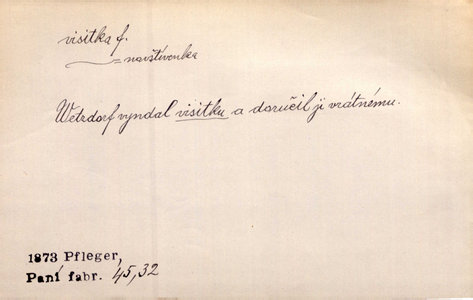 visitka f.
= navštívenka
Wetzdorf vyndal visitku a doručil ji vrátnému.
1873 Pfleger,
Paní fabr. 45,32